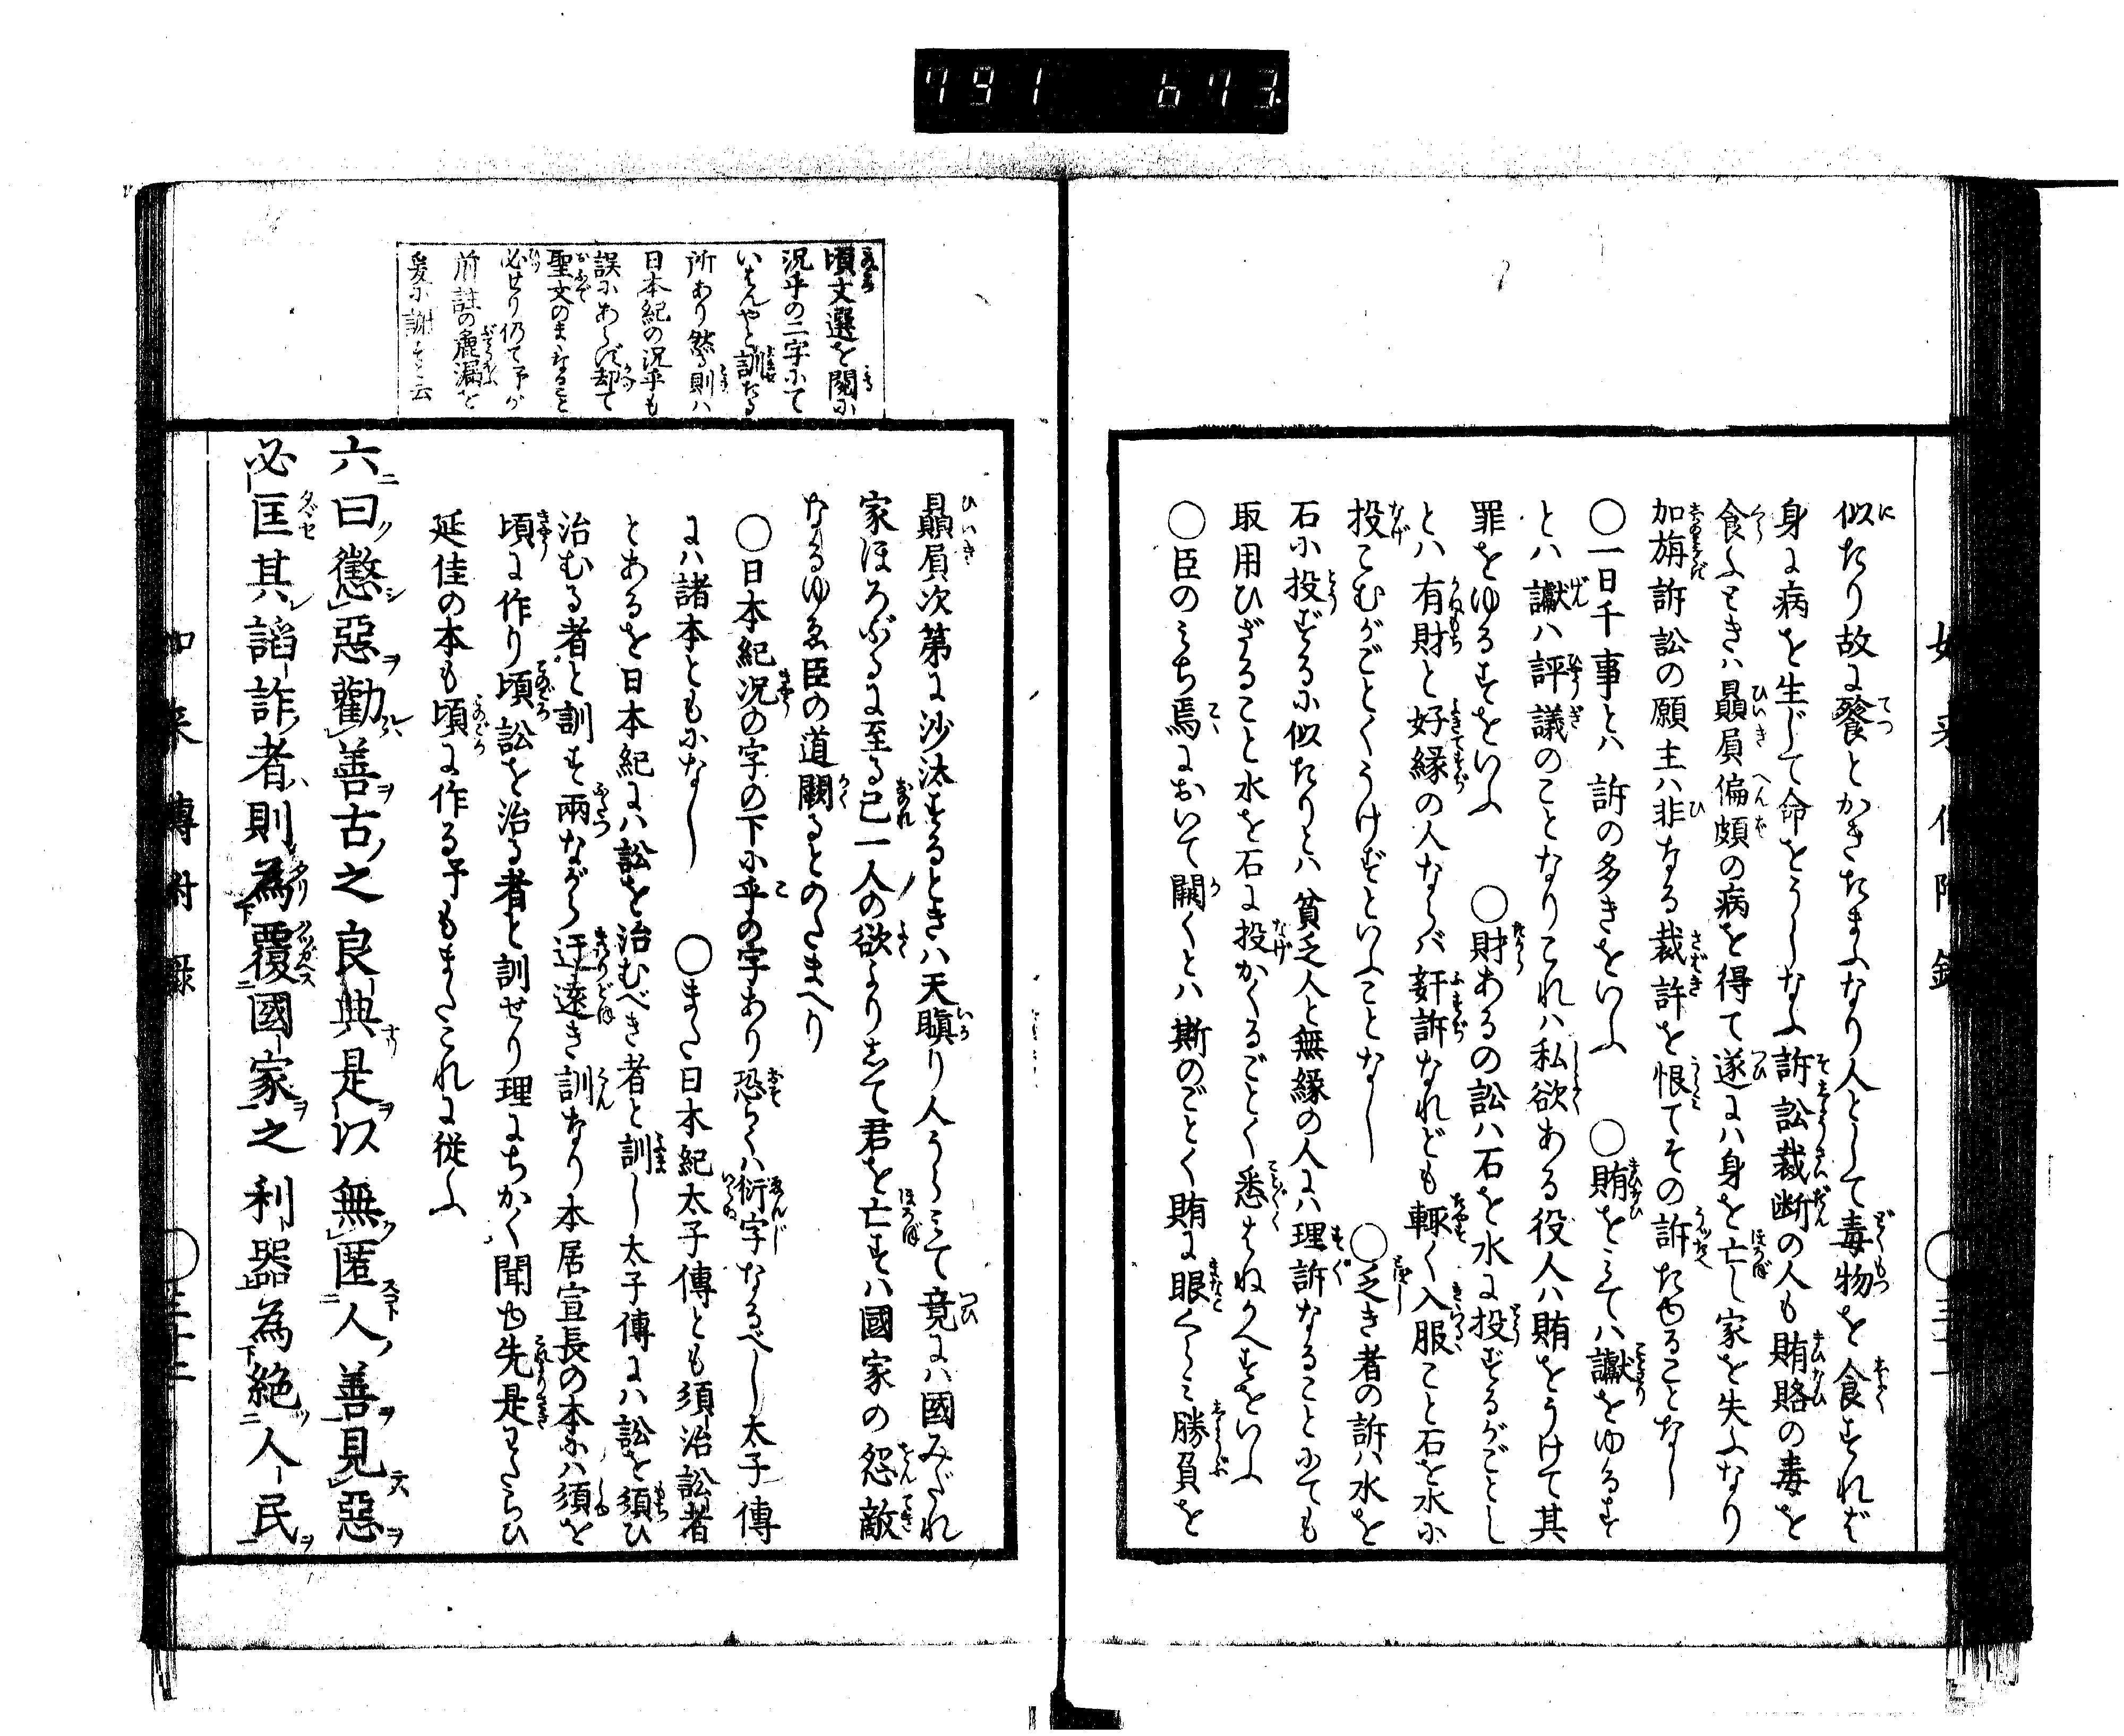 791 673
似たり故に餮とかきたまふなり人として毒物を食すれば
身に病を生じて命をうしなふ訴訟裁断の人も賄賂の毒を
食ふときハ贔屓偏頗の病を得て遂にハ身を亡し家を失ふなり
加旃訴訟の願主ハ非なる裁許を恨てその訴たゆることなし
〇一日千事とハ訴の多きをいふ　〇賄をみてハ讞をゆるす
とハ讞ハ評議のことなりこれハ私欲ある役人ハ賄をうけて其
罪をゆるすをいふ　〇財あるの訟ハ石を水に投ずるがごとし
とハ有財と好縁の人ならバ姧訴なれども輙く入服こと石を水に
投こむがごとくうけずといふことなし　〇乏き者の訴ハ水を
石に投ずるに似たりとハ貧乏人と無縁の人にハ理訴なることにても
取用ひざること水を石に投かくるごとく悉はねかへすをいふ
〇臣のみち焉において闕くとハ斯のごとく賄に眼くらみ勝負を
頃文選を閲に
況乎の二字にて
いはんやと訓たる
所あり然る則ハ
日本紀の況乎も
誤にあらず却て
聖文のまゝなること
必せり仍て予が
前註の麁漏を
爰に謝すと云
贔屓次第に沙汰するときハ天瞋り人うらみて竟にハ國みだれ
家ほろぶるに至る己一人の欲よりして君を亡すハ國家の怨敵
なるゆゑ臣の道闕るとのたまへり
〇日本紀況の字の下に乎の字あり恐らくハ衍字なるべし太子傳
にハ諸本ともになし　〇また日本紀太子傳とも須治訟者
とあるを日本紀にハ訟を治むべき者と訓し太子傳にハ訟を須ひ
治むる者と訓す兩ながら迂遠き訓なり本居宣長の本にハ須を
頃に作り頃訟を治る者と訓せり理にちかく聞ゆ先是わたらひ
延佳の本も頃に作る予もまたこれに従ふ
六ニ曰ク懲シ惡ヲ勸ルハ善ヲ古ノ之良典ナリ是ヲ以無ク匿スコト人ノ善ヲ見テハ惡ヲ
必匡セ其レ諂詐者ハ則為覆國家ヲ之利器為絶ツ人民ヲ